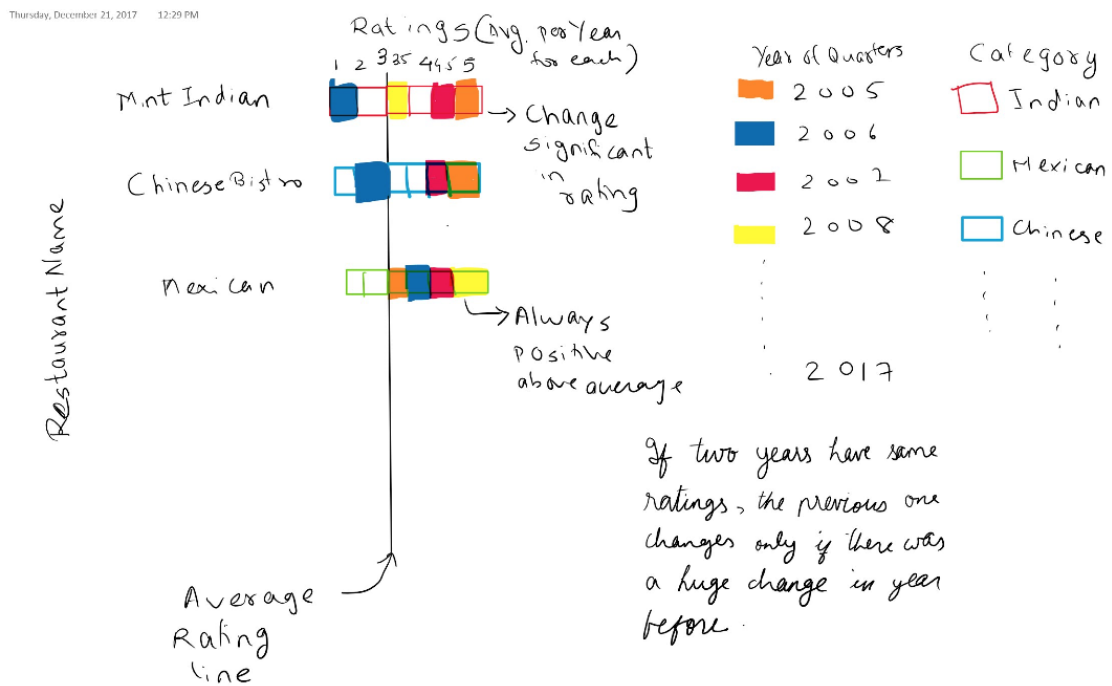 Thursday, December 21, 2017 12:29 PM
Ratings (Avg. per Year
for each)
1 2 3 3.5 4 4.5 5
Mint Indian
→ Change
significant
in
rating
Chinese Bistro
Mexican
→ Always
positive
above average
Restaurant Name
Average
Rating
line
Year of Quarters
2005
2006
2007
2008
2017
Category
Indian
Mexican
Chinese
If two years have same
ratings, the previous one
changes only if there was
a huge change in year
before.